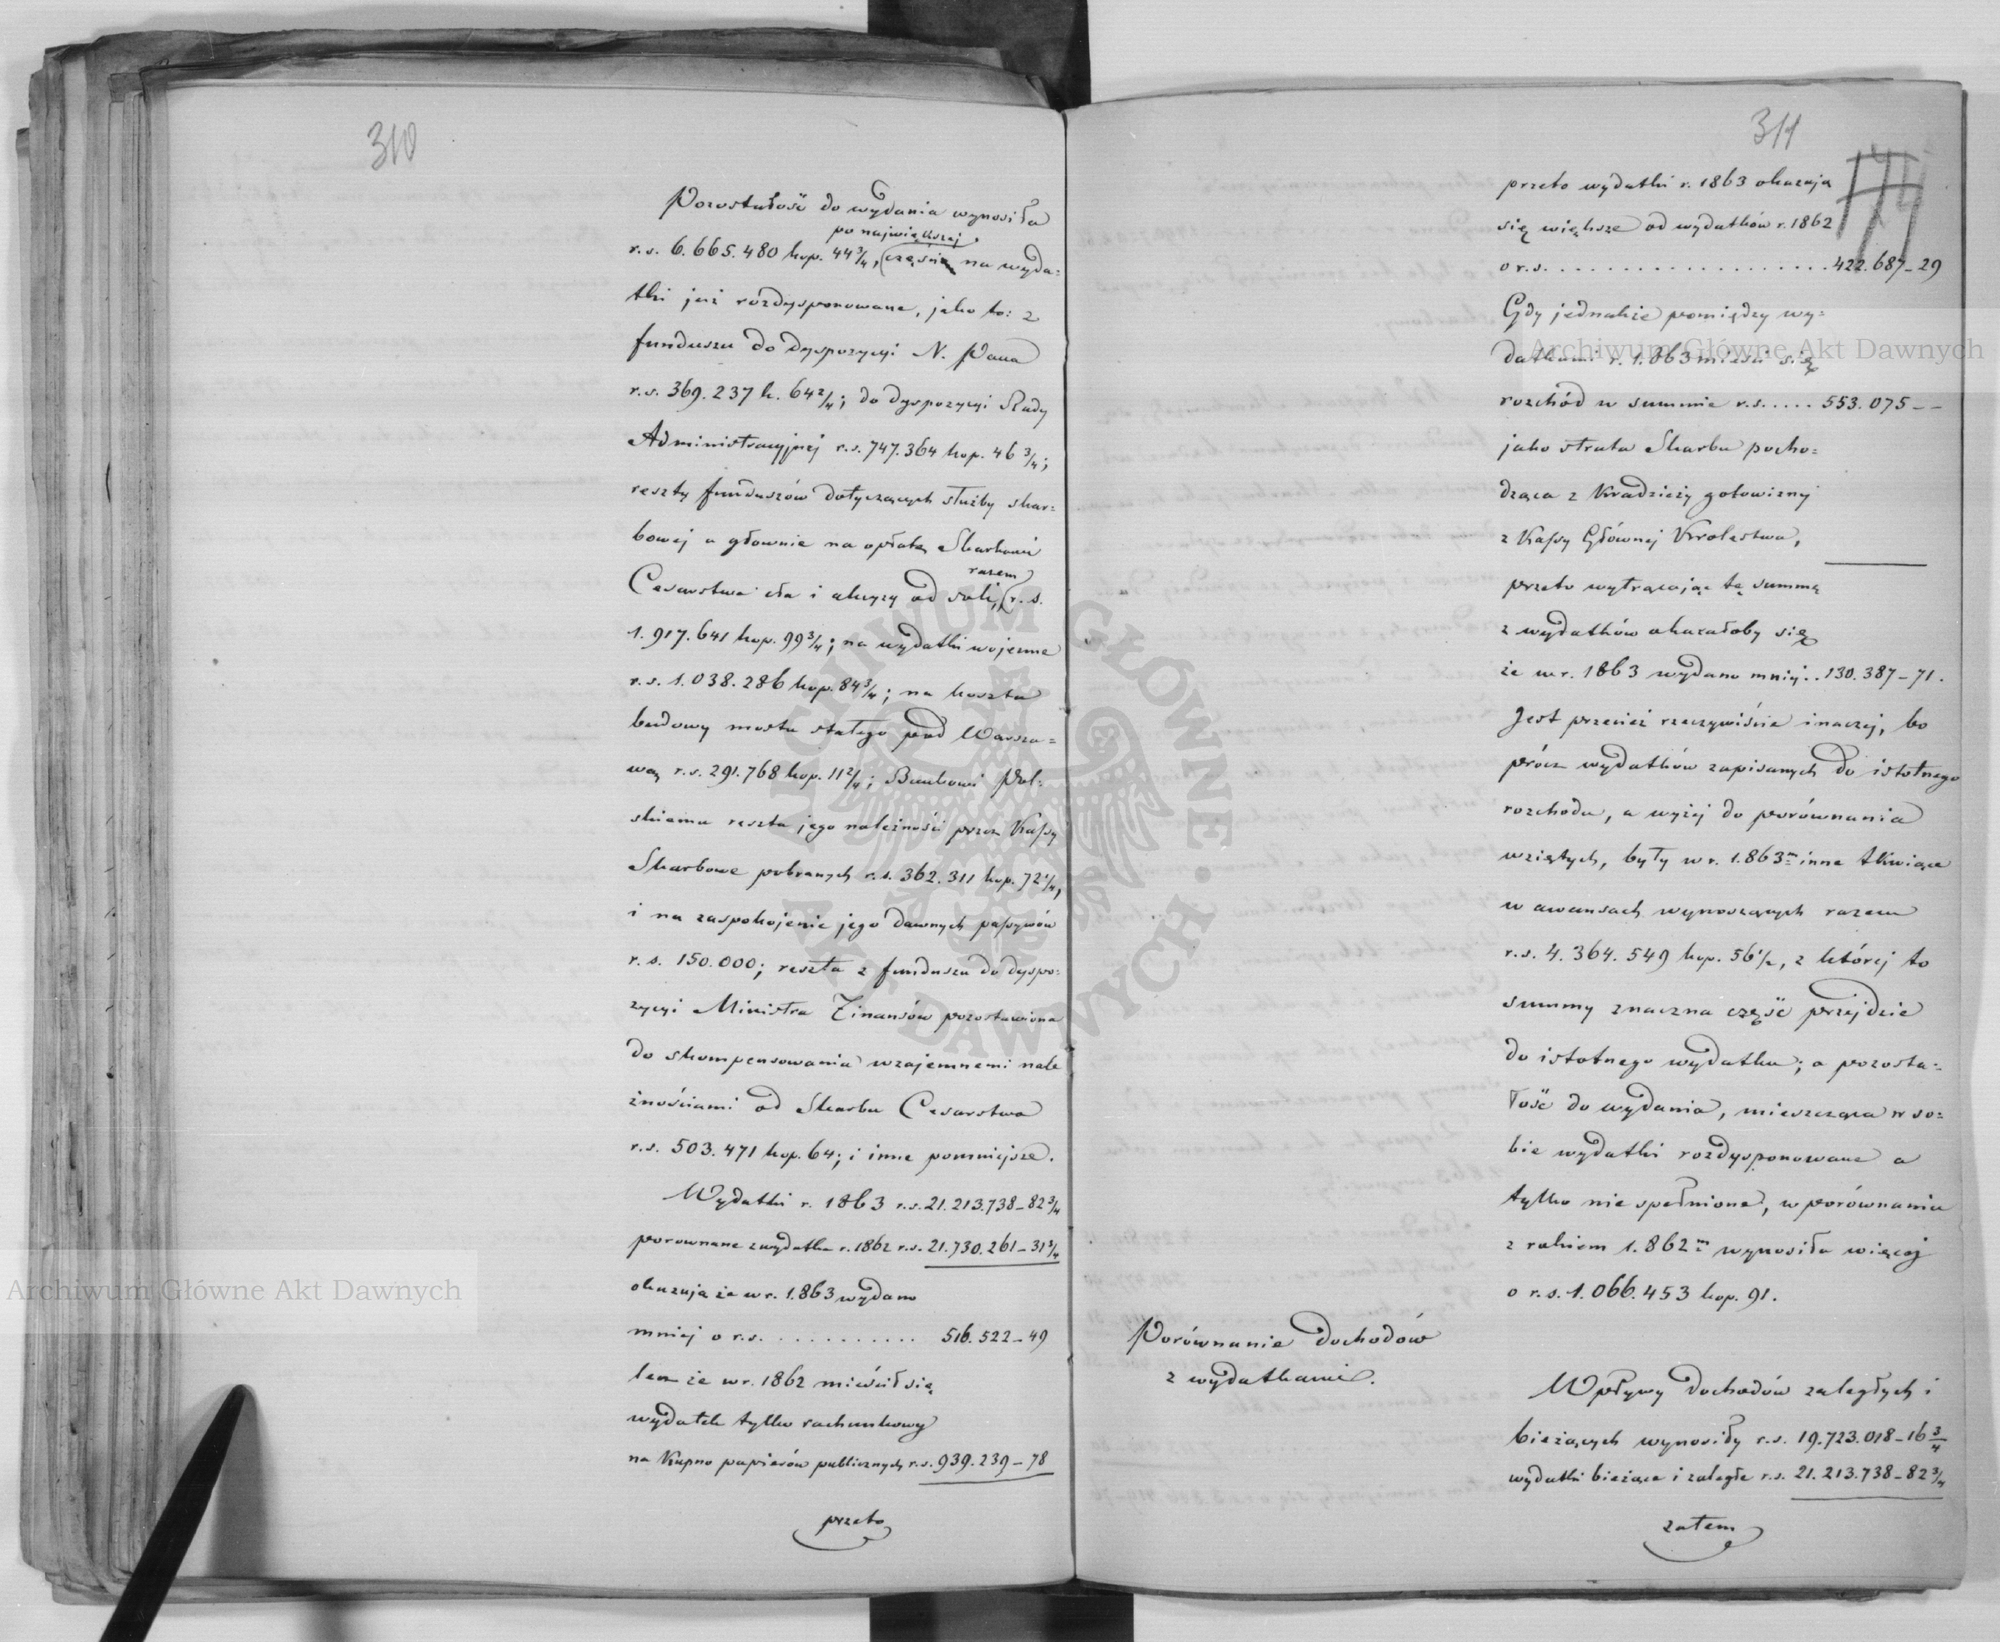 310
Pozostałość do wydania wynosiła
po największej
r.s. 6.665.480 kop. 44 3/4, części na wyda=
tki już rozdysponowane, jako to: z
funduszu do dyspozycyi N. Pana
r.s. 369.237 k. 64 2/4; do dyspozycyi Rady
Administracyjnej r.s. 747.364 kop. 46 3/4;
resztę funduszów dotyczących służby skar=
bowej a głownie na opłatę Skarbowi
razem
Cesarstwa cła i akcyzy od soli, r.s.
1.917.641 kop. 99 3/4; na wydatki wojenne
r.s. 1.038.286 kop. 84 3/4; na koszta
budowy mostu stałego pod Warsza=
wą r.s. 291.768 kop. 11 2/4; Bankowi Pol=
skiemu reszta jego należności przez Kassy
Skarbowe pobranych r.s. 362.311 kop. 72 1/4,
i na zaspokojenie jego dawnych passywów
r.s. 150.000; reszta z funduszu do dyspo=
zycyi Ministra Finansów pozostawiona
do skompensowania wzajemnemi nale
żnościami od Skarbu Cesarstwa
r.s. 503.471 kop. 64; i inne pomniejsze.
Wydatki r. 1863 r.s. 21.213.738_82 3/4
porownane z wydatku r. 1862 r.s. 21.730.261_31 3/4
okazują że w r. 1.863 wydano
mniej o r.s. . . . . . . . . . . . 516.522_49
lecz że w r. 1862 mieścił się
wydatek tylko rachunkowy
na Kupno papierów publicznych r.s. 939.239_78
przeto
311
174
przeto wydatki r. 1863 okazują
się większe od wydatków r. 1862
o r.s. . . . . . . . . . . . . . . . . . . 422.687_29
Gdy jednakże pomiędzy wy=
datkami r. 1.863 mieści się
rozchód w summie r.s. . . . . 553.075__
jako strata Skarbu pocho=
dząca z Kradzieży gotowizny
z Kassy Głównej Krolestwa,
przeto wytrącając tę summę
z wydatków okazałoby się
że w r. 1863 wydano mniej . . 130.387_71.
Jest przecież rzeczywiście inaczej, bo
prócz wydatków zapisanych do istotnego
rozchodu, a wyżej do porównania
wziętych, były w r. 1.863m inne tkwiące
w awansach wynoszących razem
r.s. 4.364.549 kop. 56 1/2, z której to
summy znaczna część przejdzie
do istotnego wydatku; a pozosta=
łość do wydania, mieszcząca w so=
bie wydatki rozdysponowane a
tylko nie spełnione, w porównaniu
z rokiem 1.862m wynosiła więcej
o r.s. 1.066.453 kop. 91.
Porównanie dochodów
z wydatkami.
Wpływy dochodów zaległych i
bieżących wynosiły r.s. 19.723.018_16 3/4
wydatki bieżące i zaległe r.s. 21.213.738_82 3/4
zatem
Archiwum Główne Akt Dawnych
Archiwum Główne Akt Dawnych
ARCHIWUM GŁÓWNE AKT DAWNYCH